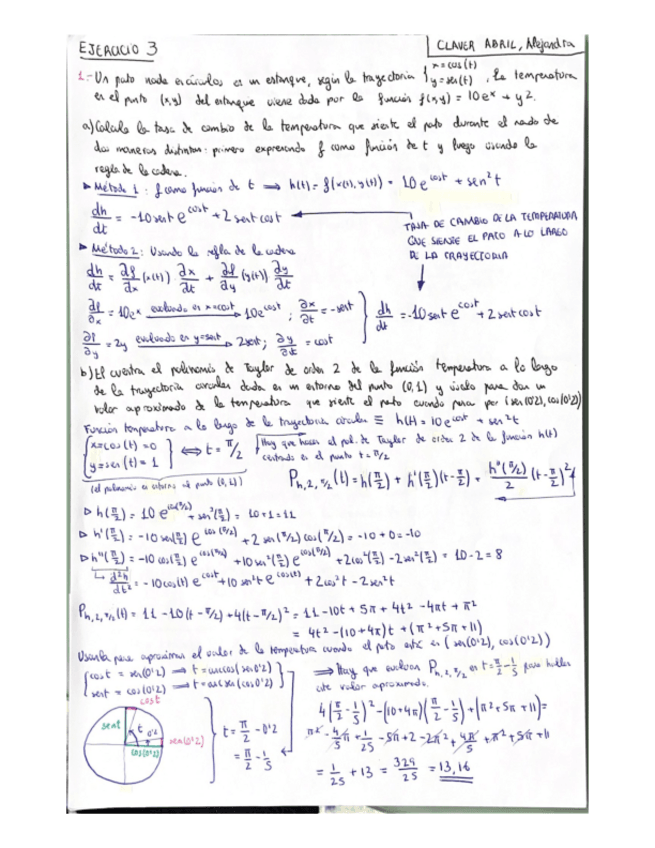 EJERCICIO 3
CLAVER ABRIL, Alejandra
1.- Un pato nada en círculos en un estanque, según la trayectoria { x = cos(t) y = sen(t) , la temperatura
en el punto (x,y) del estanque viene dada por la función f(x,y) = 10e^x + y².
a) Calcula la tasa de cambio de la temperatura que siente el pato durante el nado de
dos maneras distintas: primero expresando f como función de t y luego usando la
regla de la cadena.
▶ Método 1: f como función de t ⟹ h(t) = f(x(t), y(t)) = 10e^cost + sen²t
dh/dt = -10sent e^cost + 2 sent cost
TASA DE CAMBIO DE LA TEMPERATURA
QUE SIENTE EL PATO A LO LARGO
DE LA TRAYECTORIA
▶ Método 2: Usando la regla de la cadena
dh/dt = ∂f/∂x (x(t)) ∂x/∂t + ∂f/∂y (y(t)) ∂y/∂t
∂f/∂x = 10e^x evaluado en x=cost → 10e^cost ; ∂x/∂t = -sent
dh/dt = -10 sent e^cost + 2 sent cost
∂f/∂y = 2y evaluado en y=sent → 2sent; ∂y/∂t = cost
b) Encuentra el polinomio de Taylor de orden 2 de la función temperatura a lo largo
de la trayectoria circular dada en un entorno del punto (0,1) y úsalo para dar un
valor aproximado de la temperatura que siente el pato cuando pasa por (sen(0'2), cos(0'2))
Función temperatura a lo largo de la trayectoria circular ≡ h(t) = 10e^cost + sen²t
{ x = cos(t) = 0 y = sen(t) = 1 } ⟺ t = π/2
Hay que hacer el pol. de Taylor de orden 2 de la función h(t)
centrado en el punto t = π/2
(el polinomio en entorno al punto (0,1))
P_h,2,π/2 (t) = h(π/2) + h'(π/2)(t-π/2) + h''(π/2)/2 (t-π/2)²
▷ h(π/2) = 10 e^cos(π/2) + sen²(π/2) = 10+1 = 11
▷ h'(π/2) = -10 sen(π/2) e^cos(π/2) + 2 sen(π/2) cos(π/2) = -10 + 0 = -10
▷ h''(π/2) = -10 cos(π/2) e^cos(π/2) + 10sen²(π/2) e^cos(π/2) + 2cos²(π/2) - 2sen²(π/2) = 10-2 = 8
d²h/dt² = -10cos(t) e^cost + 10 sen²t e^cos(t) + 2cos²t - 2sen²t
P_h,2,π/2 (t) = 11 - 10(t-π/2) + 4(t-π/2)² = 11 - 10t + 5π + 4t² - 4πt + π²
= 4t² - (10+4π)t + (π² + 5π + 11)
Usarla para aproximar el valor de la temperatura cuando el pato está en (sen(0'2), cos(0'2))
{ cost = sen(0'2) ⟹ t = arccos(sen0'2)
sent = cos(0'2) ⟹ t = arcsen(cos0'2) }
⟹ Hay que evaluar P_h,2,π/2 en t = π/2 - 1/5 para hallar
este valor aproximado.
cost
sent
t
0'2
sen(0'2)
cos(0'2)
t = π/2 - 0'2
= π/2 - 1/5
4(π/2 - 1/5)² - (10+4π)(π/2 - 1/5) + (π² + 5π + 11) =
π² - 4/5 π + 1/25 - 5π + 2 - 2π² + 4π/5 + π² + 5π + 11
= 1/25 + 13 = 329/25 = 13,16